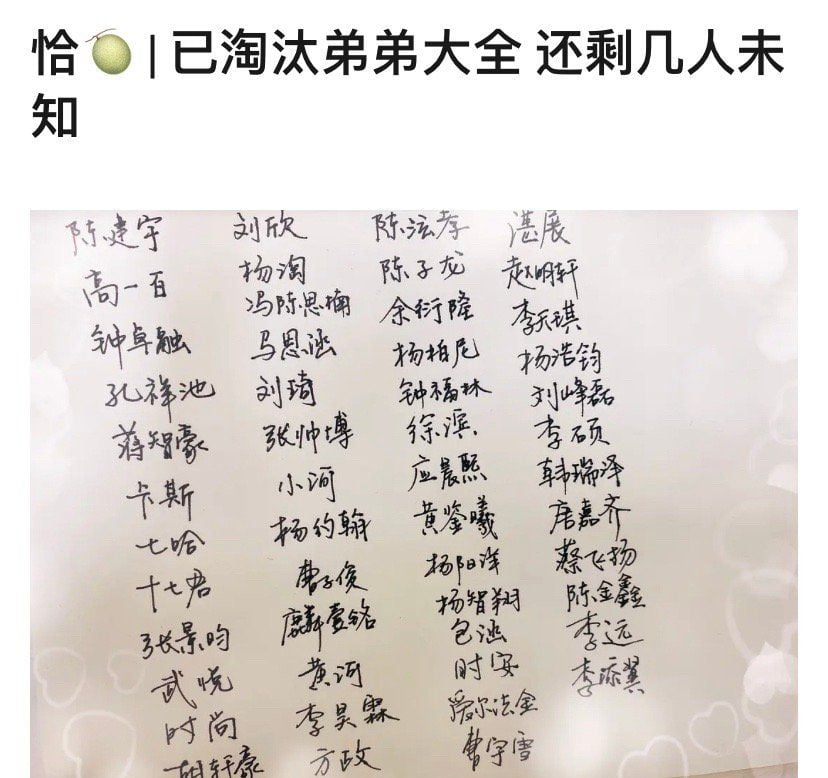 恰🍈 | 已淘汰弟弟大全 还剩几人未
知
陈建宇 刘欣 陈泫孝 湛展
高一百 杨淘 陈子龙 赵明轩
钟卓融 冯陈思楠 余衍隆 李天琪
孔祥池 马思涵 杨柏尼 杨浩钧
蒋智豪 刘琦 钟福林 刘峰磊
卡斯 张帅博 徐滨 李硕
七哈 小河 应晨熙 韩瑞泽
十七君 杨约翰 黄鉴曦 唐嘉齐
张景昀 曹子俊 杨阳洋 蔡飞扬
武悦 麟壹铭 杨智翔 陈金鑫
时尚 黄河 包涵 李远
胡轩豪 李昊霖 时安 李添翼
方政 爱尔法金
曹宇雪